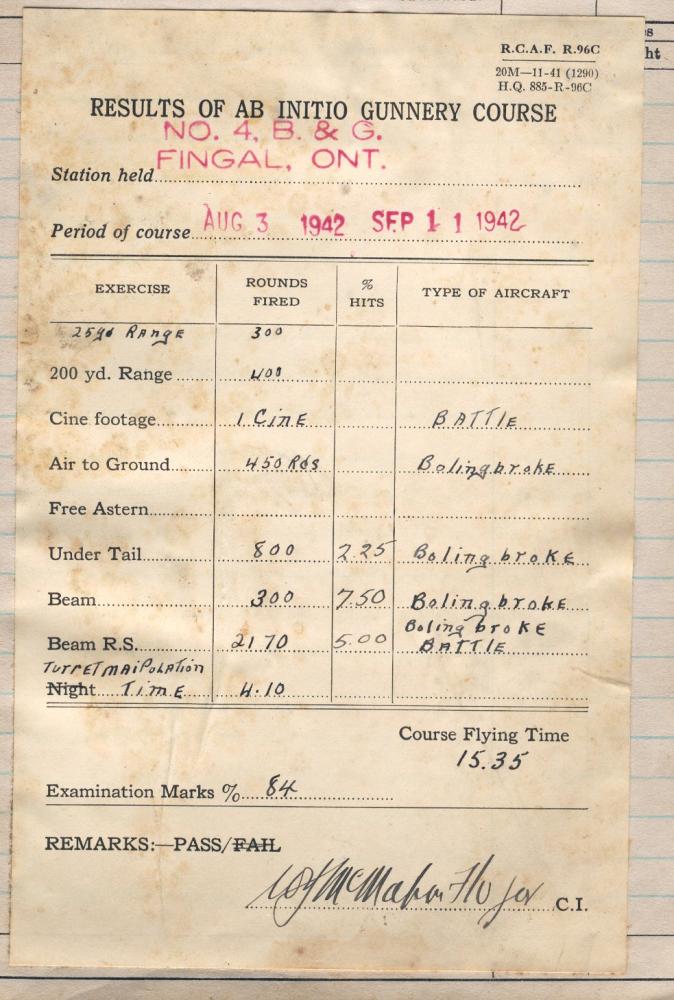 s
ht
R.C.A.F. R.96C
20M—11-41 (1290)
H.Q. 885-R-96C
RESULTS OF AB INITIO GUNNERY COURSE
NO. 4, B. & G.
FINGAL, ONT.
Station held
Period of course AUG 3 1942 SEP 11 1942
EXERCISE ROUNDS FIRED % HITS TYPE OF AIRCRAFT
25yd RAngE 300
200 yd. Range 400
Cine footage 1 CinE BATTlE
Air to Ground 450 Rds Bolingbroke
Free Astern
Under Tail 800 2.25 BolingbroKE
Beam 300 7.50 Bolingbroke
BolingbroKE
Beam R.S. 2170 5.00 BATTlE
TurrET mAiPolATion
Night TimE 4.10
Course Flying Time
15.35
Examination Marks % 84
REMARKS:—PASS/FAIL
McMahon F/o for C.I.